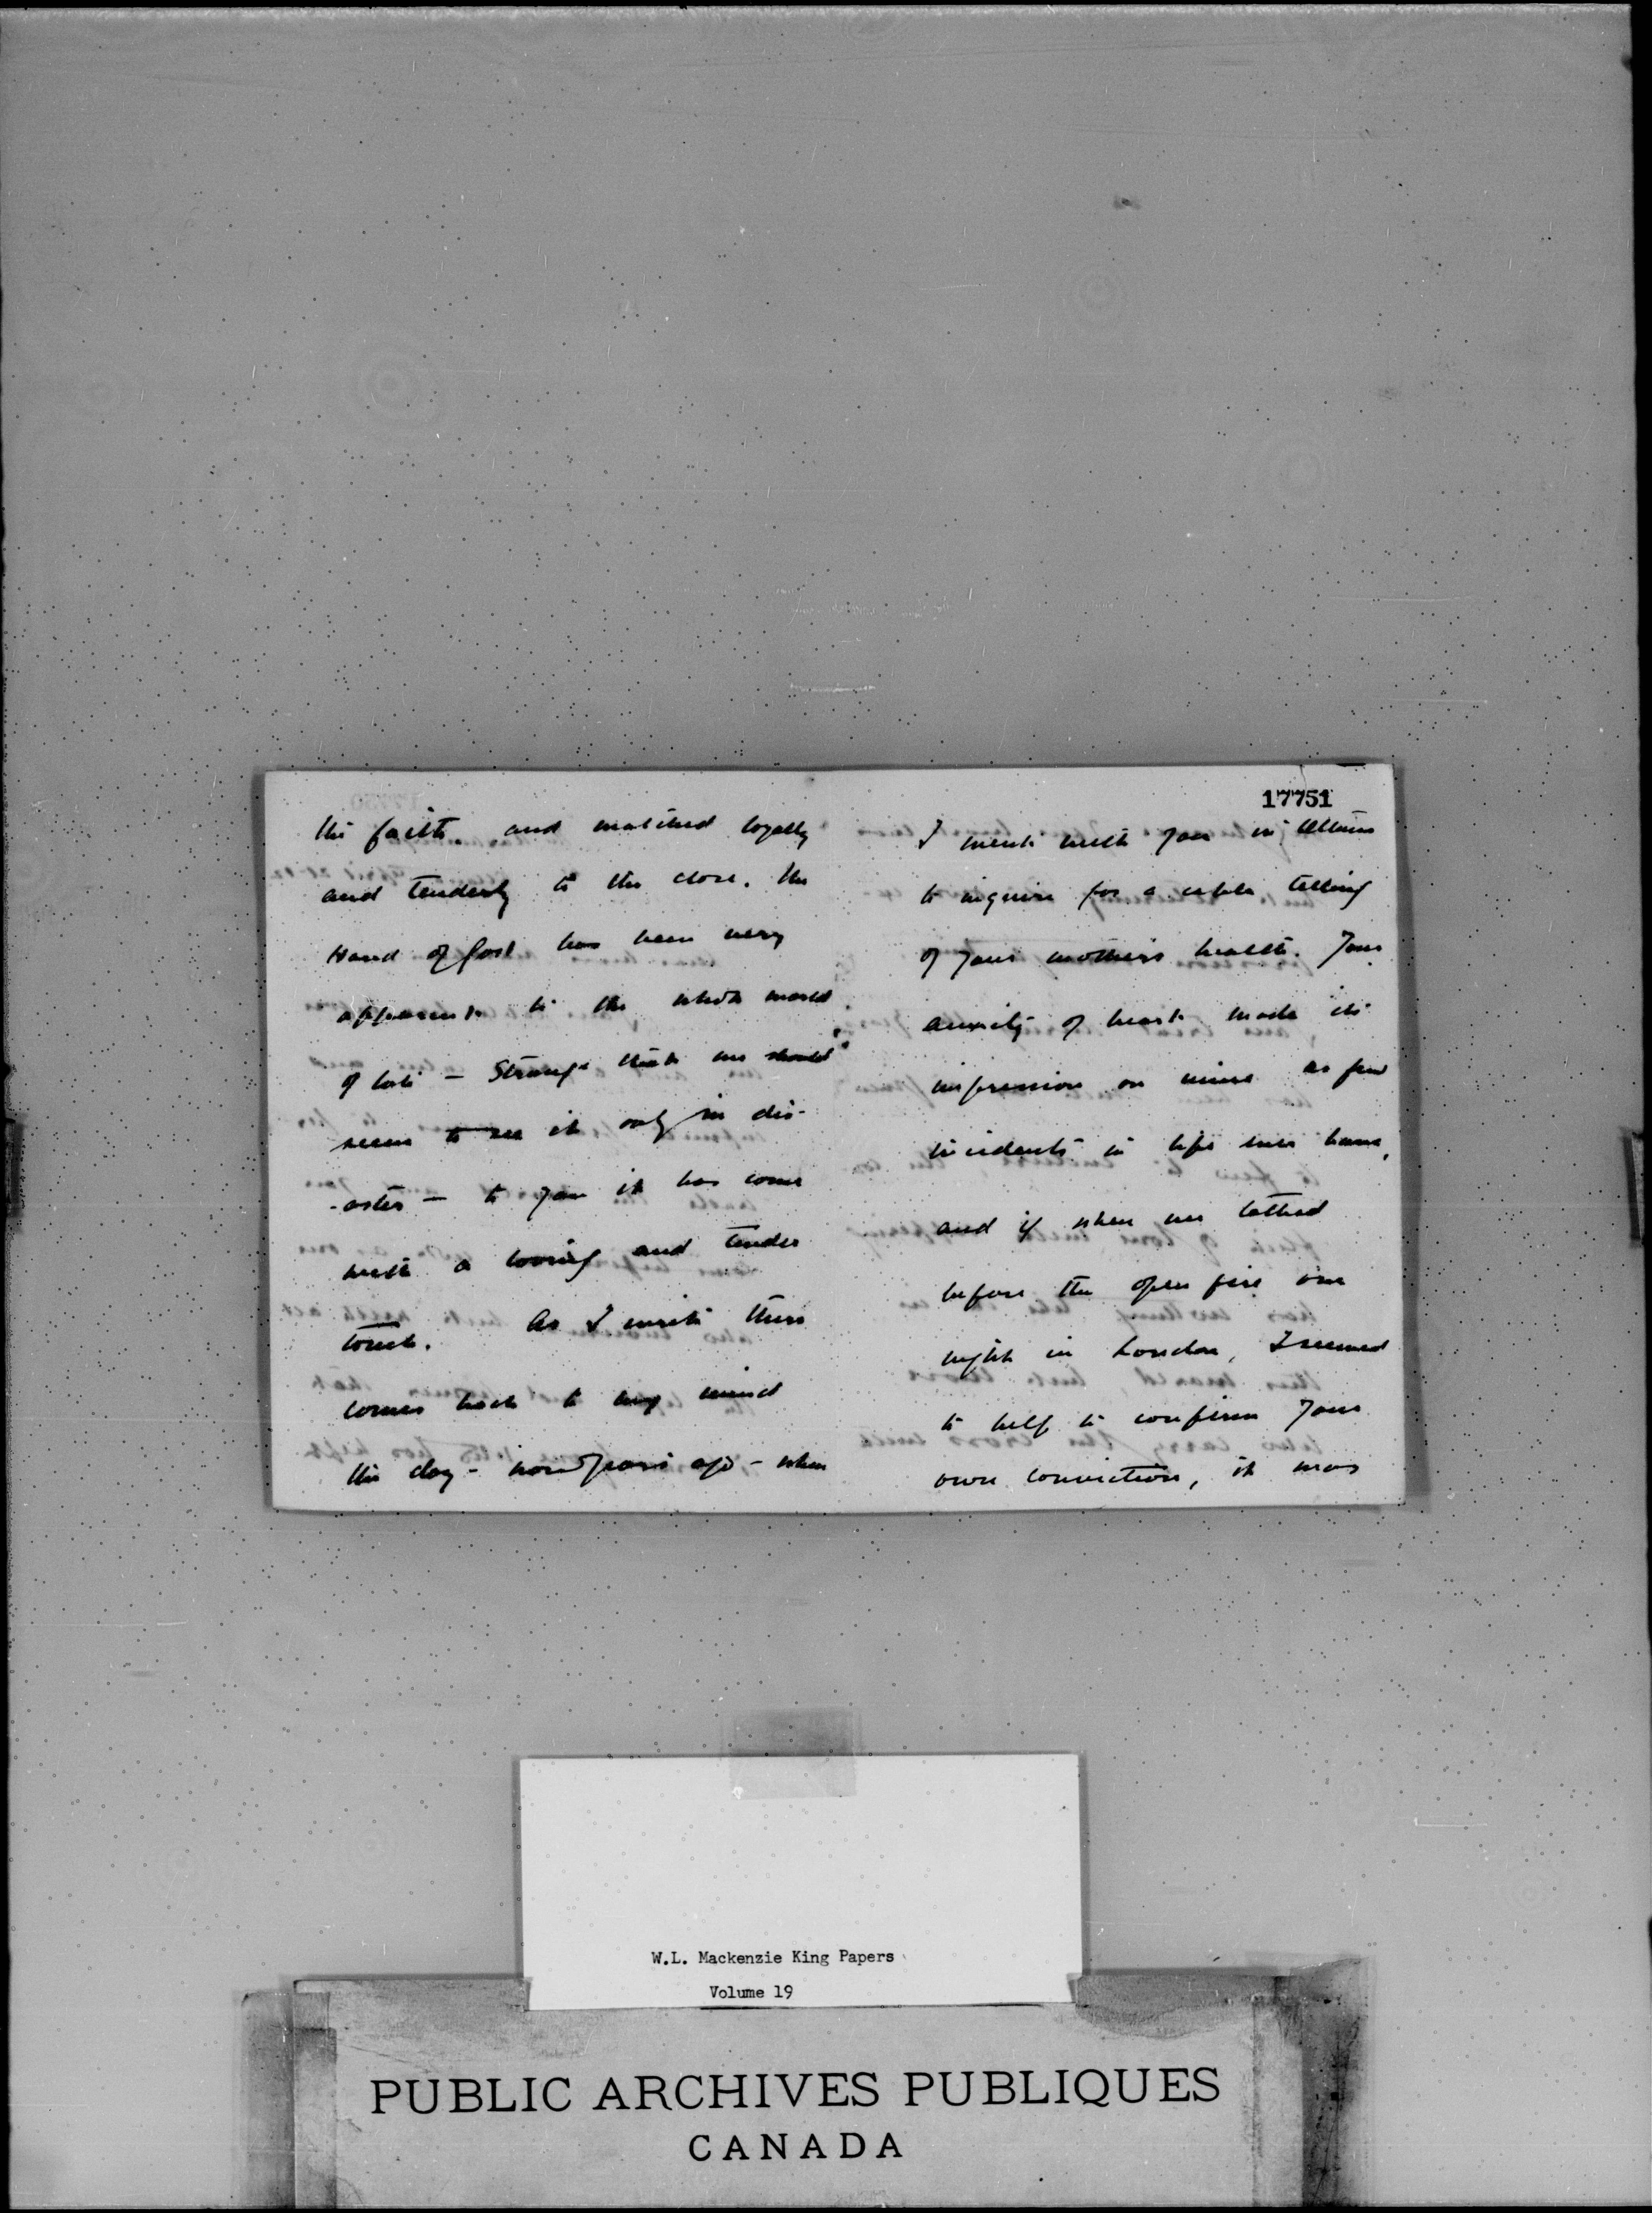 the faith. and watched loyally
and tenderly to the close. The
Hand of God has been very
apparent to the whole world
of late — Strange that we should
seem to see it only in dis-
-aster — to you it has come
with a loving and tender
touch. As I write there
comes back to my mind
the day - now years ago - when
17751
I went with you in Ottawa
to inquire for a cable telling
of your mother's health. Your
anxiety of heart made its
impression on mine as few
incidents in life ever have,
and if when we talked
before the open fire one
night in London, I seemed
to help to confirm your
own conviction, it was
W.L. Mackenzie King Papers
Volume 19
PUBLIC ARCHIVES PUBLIQUES
CANADA